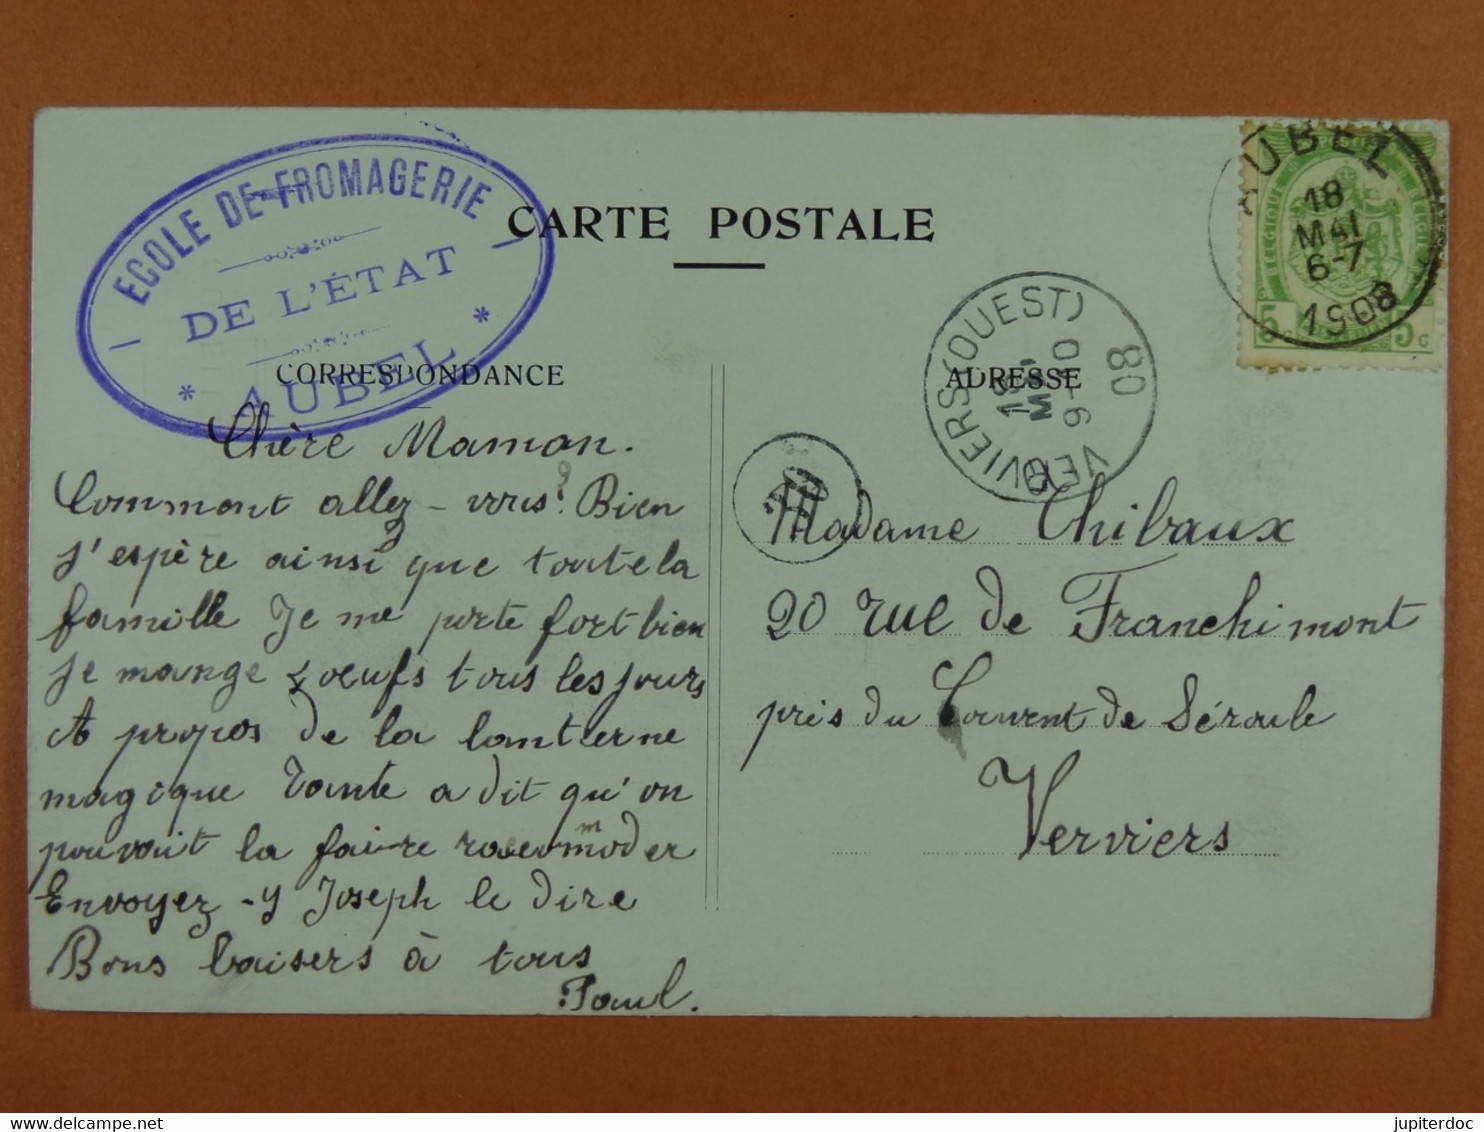 ECOLE DE FROMAGERIE
DE L'ÉTAT
* AUBEL *
CARTE POSTALE
CORRESPONDANCE
ADRESSE
AUBEL
18
MAI
6-7
1908
5c 5c
VERVIERS (OUEST)
9-10
08
Chère Maman.
Comment allez-vous? Bien
j'espère ainsi que toute la
famille Je me porte fort bien
je mange oeufs tous les jours
A propos de la lanterne
magique Tante a dit qu'on
pouvait la faire
Envoyez-y Joseph le dire
Bons baisers à tous
Paul.
Madame Thibaux
20 rue de Franchimont
près du Couvent de Séroule
Verviers
https://www.delcampe.net
jupiterdoc